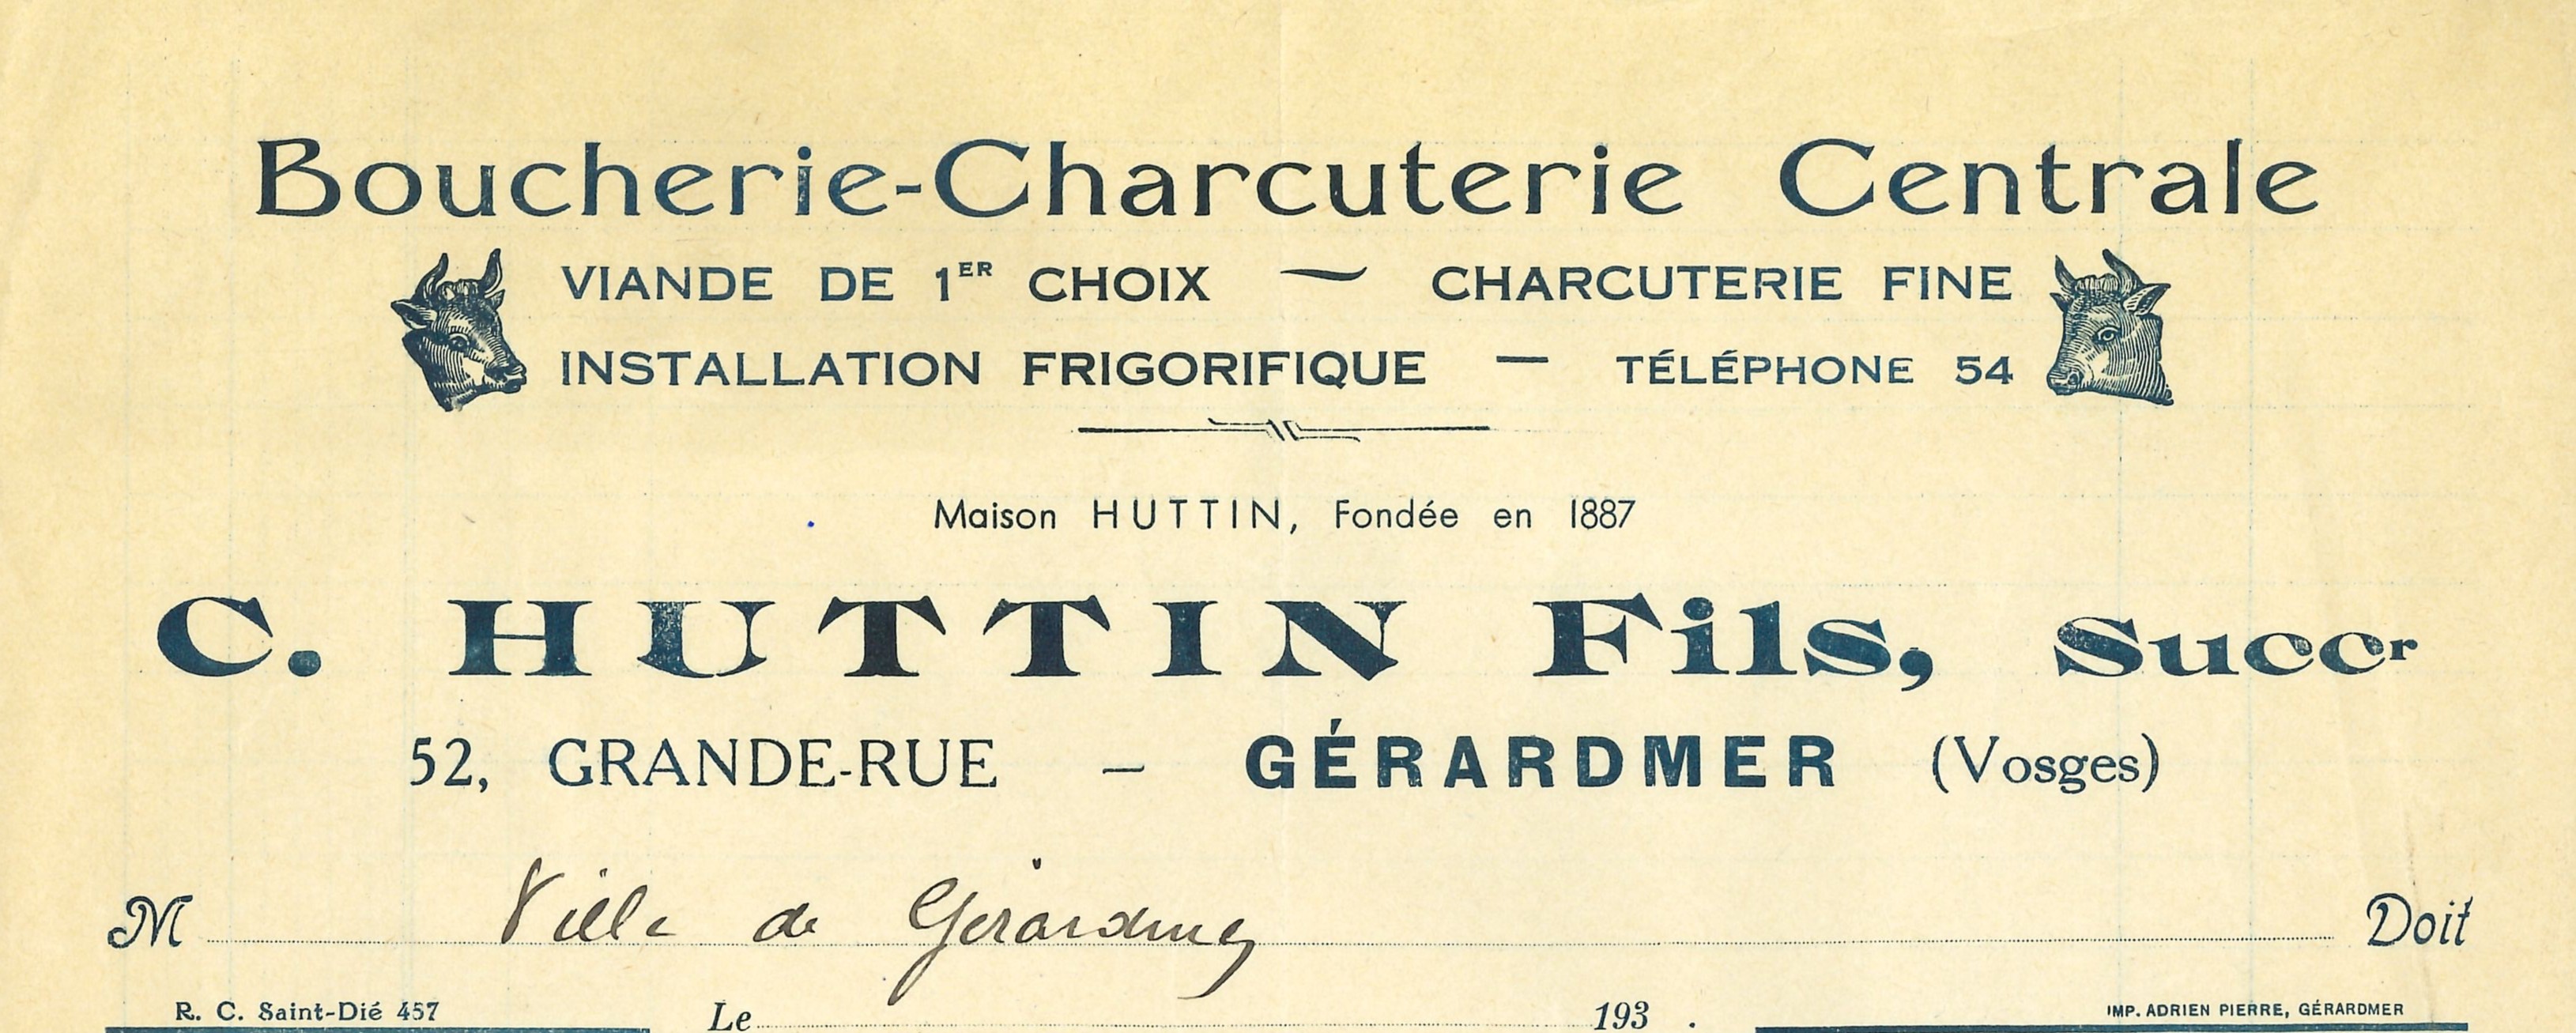 Boucherie-Charcuterie Centrale
VIANDE DE 1ER CHOIX ~ CHARCUTERIE FINE
INSTALLATION FRIGORIFIQUE — TÉLÉPHONE 54
Maison HUTTIN, Fondée en 1887
C. HUTTIN Fils, Succr
52, GRANDE-RUE – GÉRARDMER (Vosges)
M Ville de Gérardmer Doit
R. C. Saint-Dié 457 Le 193 . IMP. ADRIEN PIERRE, GÉRARDMER